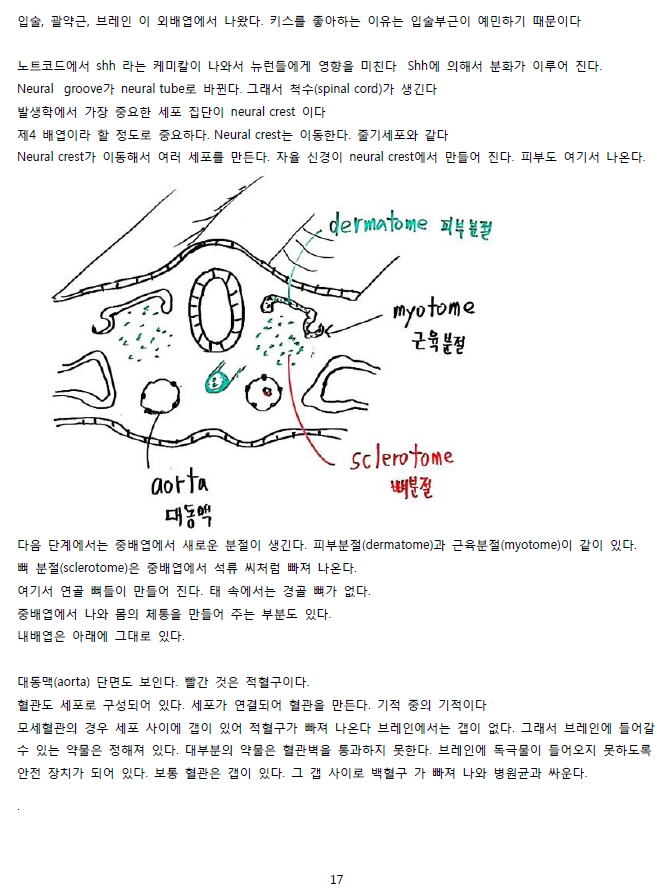 입술, 괄약근, 브레인 이 외배엽에서 나왔다. 키스를 좋아하는 이유는 입술부근이 예민하기 때문이다
노트코드에서 shh 라는 케미칼이 나와서 뉴런들에게 영향을 미친다 Shh에 의해서 분화가 이루어 진다.
Neural groove가 neural tube로 바뀐다. 그래서 척수(spinal cord)가 생긴다
발생학에서 가장 중요한 세포 집단이 neural crest 이다
제4 배엽이라 할 정도로 중요하다. Neural crest는 이동한다. 줄기세포와 같다
Neural crest가 이동해서 여러 세포를 만든다. 자율 신경이 neural crest에서 만들어 진다. 피부도 여기서 나온다.
dermatome 피부분절
myotome
근육분절
sclerotome
뼈분절
aorta
대동맥
다음 단계에서는 중배엽에서 새로운 분절이 생긴다. 피부분절(dermatome)과 근육분절(myotome)이 같이 있다.
뼈 분절(sclerotome)은 중배엽에서 석류 씨처럼 빠져 나온다.
여기서 연골 뼈들이 만들어 진다. 태 속에서는 경골 뼈가 없다.
중배엽에서 나와 몸의 체통을 만들어 주는 부분도 있다.
내배엽은 아래에 그대로 있다.
대동맥(aorta) 단면도 보인다. 빨간 것은 적혈구이다.
혈관도 세포로 구성되어 있다. 세포가 연결되어 혈관을 만든다. 기적 중의 기적이다
모세혈관의 경우 세포 사이에 갭이 있어 적혈구가 빠져 나온다 브레인에서는 갭이 없다. 그래서 브레인에 들어갈
수 있는 약물은 정해져 있다. 대부분의 약물은 혈관벽을 통과하지 못한다. 브레인에 독극물이 들어오지 못하도록
안전 장치가 되어 있다. 보통 혈관은 갭이 있다. 그 갭 사이로 백혈구 가 빠져 나와 병원균과 싸운다.
.
17